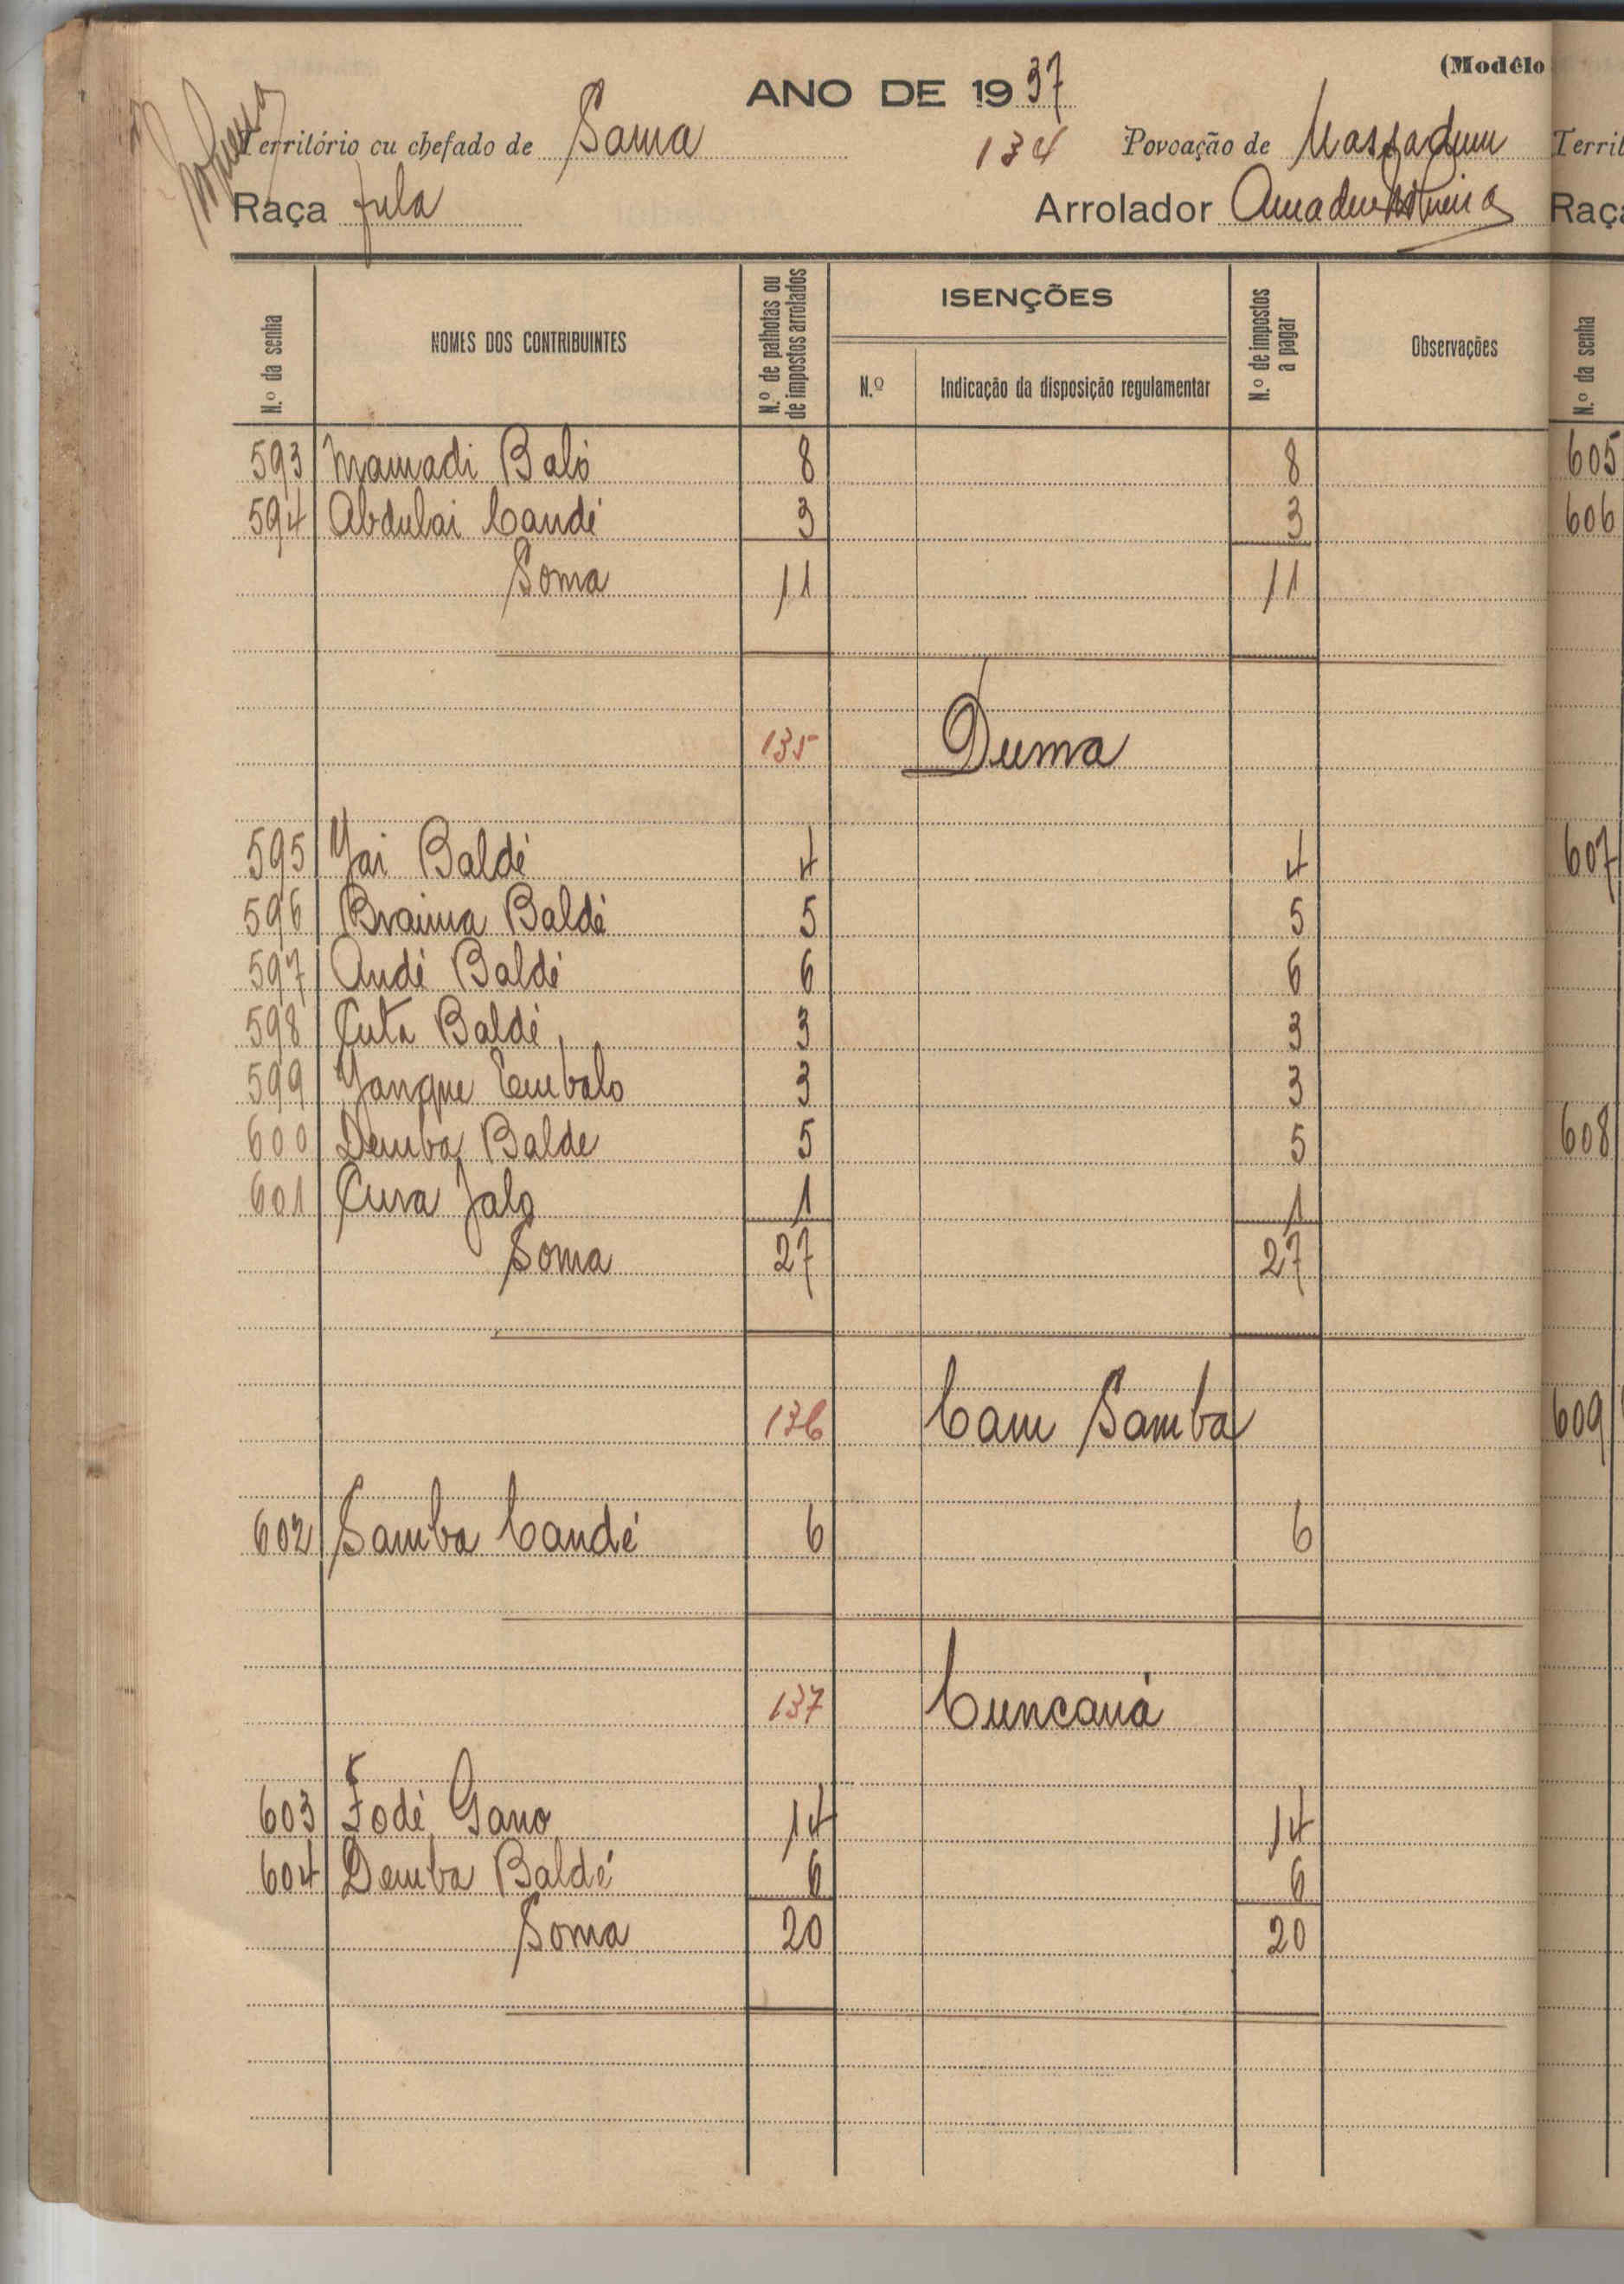 (Modêlo
ANO DE 1937
Território ou chefado de Sama 134 Povoação de
Raça fula Arrolador Amadeu
N.º da senha NOMES DOS CONTRIBUINTES N.º de palhotas ou de impostos arrolados ISENÇÕES N.º de impostos a pagar Observações
N.º Indicação da disposição regulamentar
593 Mamadi Baló 8 8
594 Abdulai Candé 3 3
Soma 11 11
135 Duma
595 Iai Baldé 4 4
596 Braima Baldé 5 5
597 Andé Baldé 6 6
598 Cuta Baldé 3 3
599 Iangue Embalo 3 3
600 Demba Balde 5 5
601 Cura Jalo 1 1
Soma 27 27
136 Cam Samba
602 Samba Candé 6 6
137 Cuncaná
603 Fodé Gano 14 14
604 Demba Baldé 6 6
Soma 20 20
Territ
Raça
N.º da senha
605
606
607
608
609